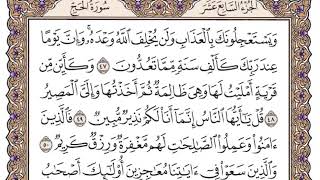 الجزء السابع عشر
سورة الحج
وَيَسْتَعْجِلُونَكَ بِالْعَذَابِ وَلَن يُخْلِفَ اللَّهُ وَعْدَهُ ۚ وَإِنَّ يَوْمًا
عِندَ رَبِّكَ كَأَلْفِ سَنَةٍ مِّمَّا تَعُدُّونَ ٤٧ وَكَأَيِّن مِّن
قَرْيَةٍ أَمْلَيْتُ لَهَا وَهِيَ ظَالِمَةٌ ثُمَّ أَخَذْتُهَا وَإِلَيَّ الْمَصِيرُ
٤٨ قُلْ يَا أَيُّهَا النَّاسُ إِنَّمَا أَنَا لَكُمْ نَذِيرٌ مُّبِينٌ ٤٩ فَالَّذِينَ
ءَامَنُوا وَعَمِلُوا الصَّالِحَاتِ لَهُم مَّغْفِرَةٌ وَرِزْقٌ كَرِيمٌ ٥٠
وَالَّذِينَ سَعَوْا فِي ءَايَاتِنَا مُعَاجِزِينَ أُولَٰئِكَ أَصْحَابُ